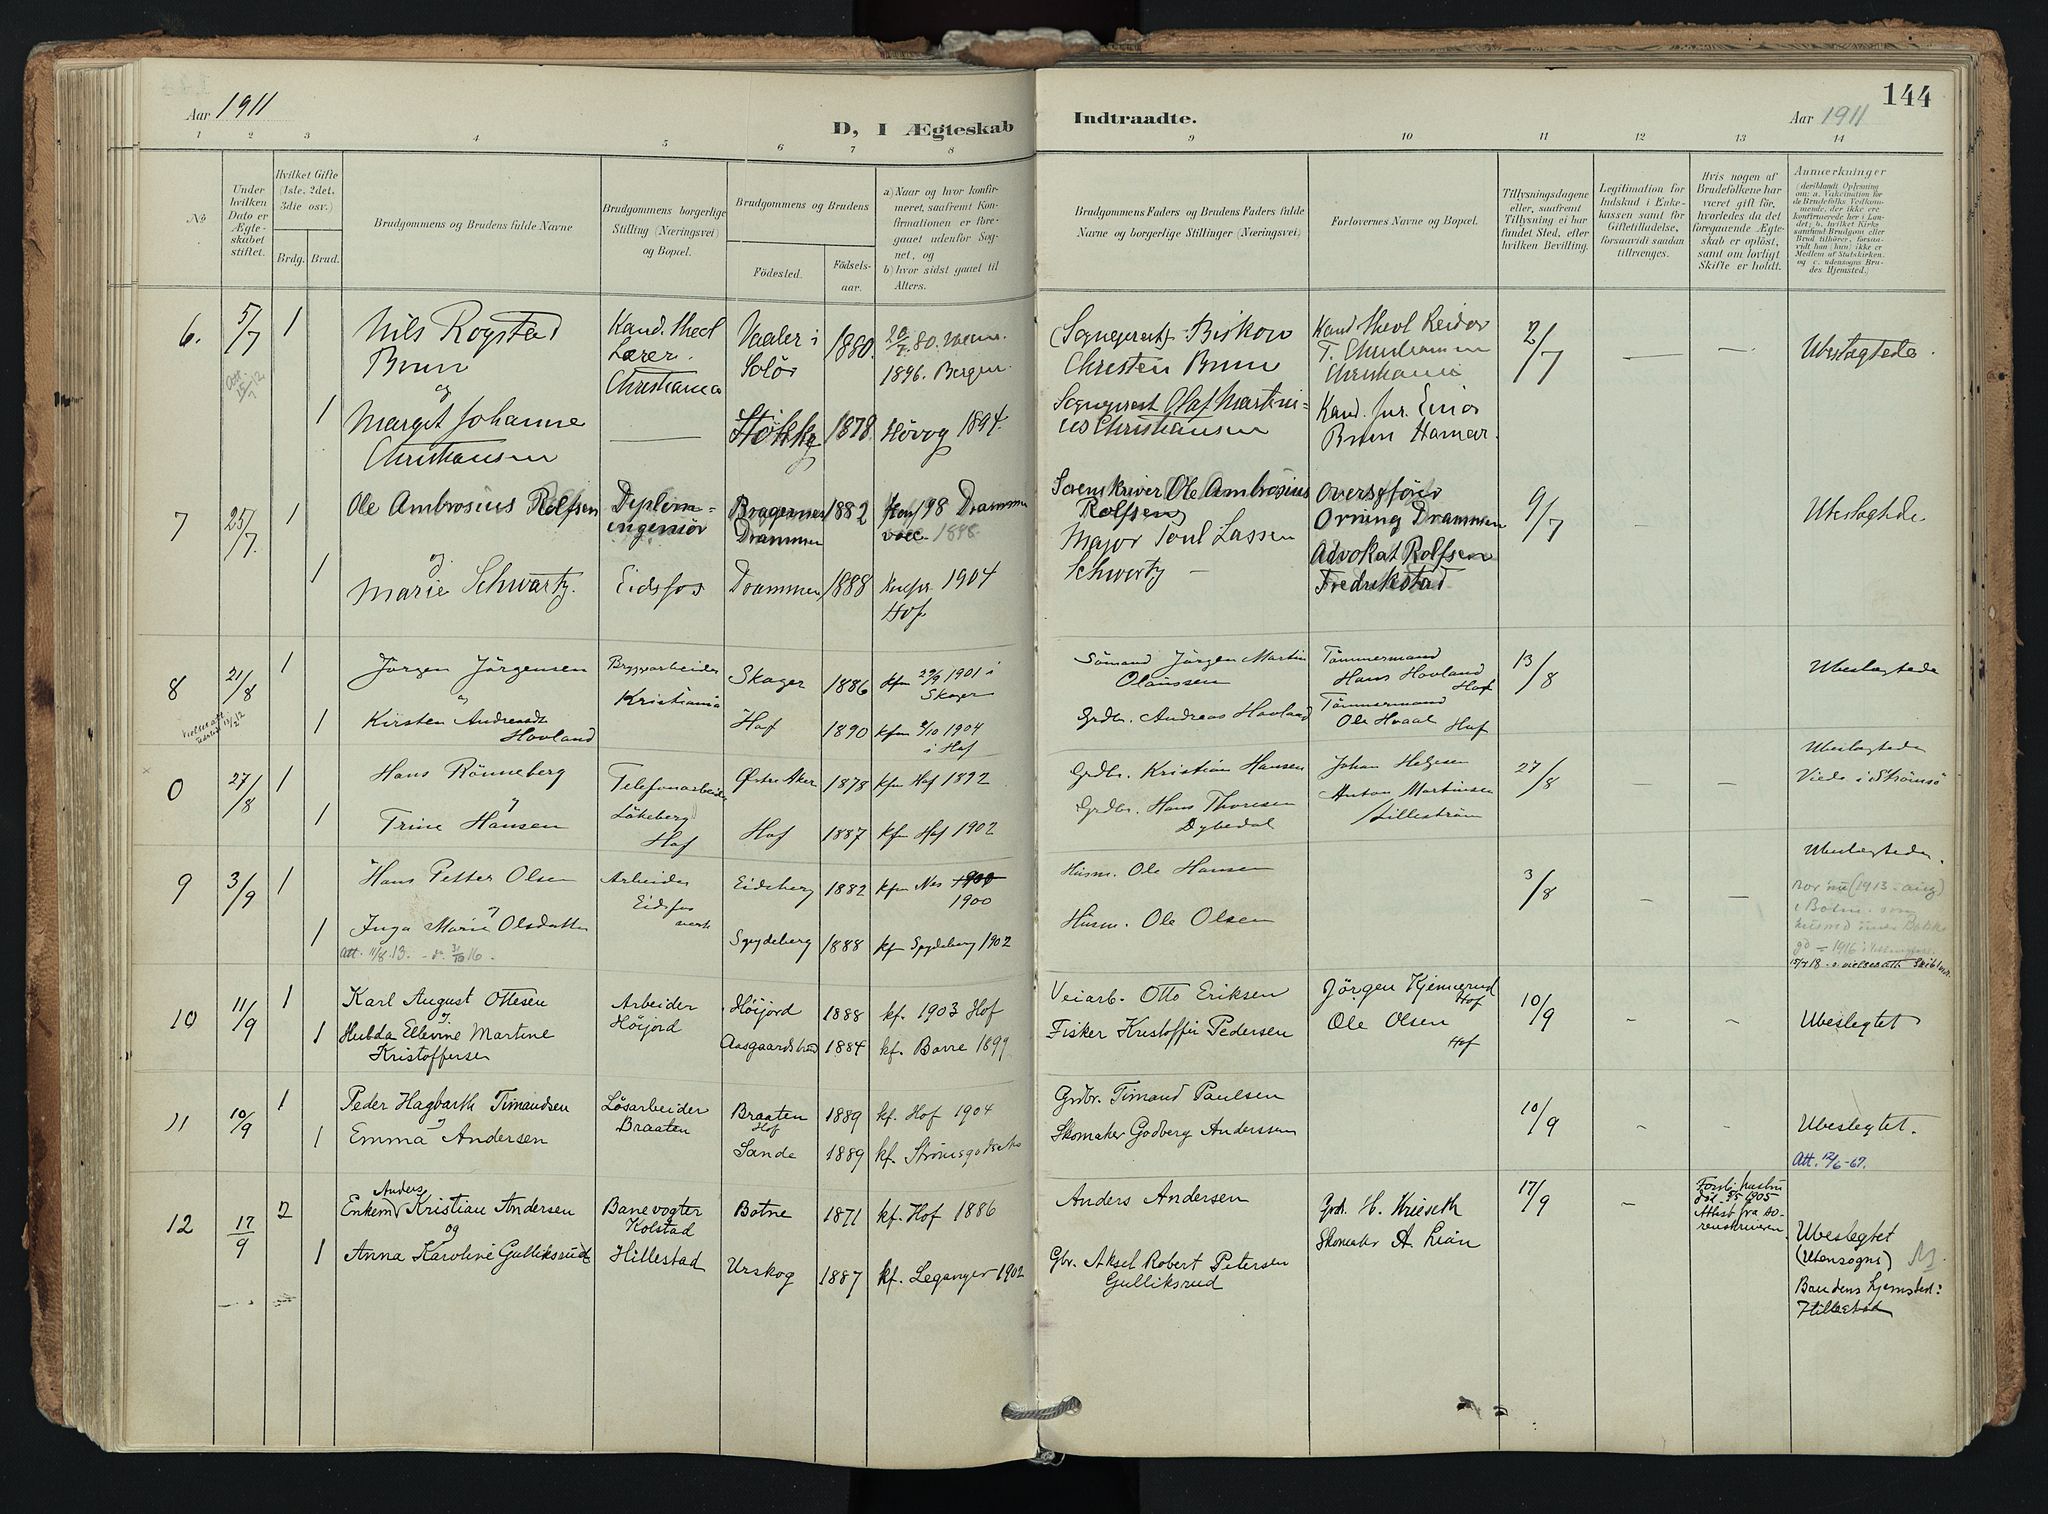 Aar 1911
D, I Ægteskab
Indtraadte.
Aar 1911
144
1 2 3 4 5 6 7 8 9 10 11 12 13 14
No
Under hvilken Dato er Ægteskabet stiftet.
Hvilket Gifte (1ste, 2det, 3die osv.)
Brdg. Brud.
Brudgommens og Brudens fulde Navne
Brudgommens borgerlige Stilling (Næringsvei) og Bopæl.
Brudgommens og Brudens
Födested.
Födsels-aar.
a) Naar og hvor konfirmeret, saafremt Konfirmationen er foregaaet udenfor Sognet, og
b) hvor sidst gaaet til Alters.
Brudgommens Faders og Brudens Faders fulde Navne og borgerlige Stillinger (Næringsvei)
Forlovernes Navne og Bopæl.
Tillysningsdagene eller, saafremt Tillysning ei har fundet Sted, efter hvilken Bevilling.
Legitimation for Indskud i Enkekassen samt for Giftetilladelse, forsaavidt saadan tiltrænges.
Hvis nogen af Brudefolkene har været gift før, hvorledes da det foregaaende Ægteskab er oplöst, samt om lovligt Skifte er holdt.
Anmærkninger
(deriblandt Oplysning om: a. Vakcination for de Brudefolks Vedkommende, der ikke ere konfirmerede her i Landet; b. hvilket Kirkesamfund Brudgom eller Brud tilhörer, forsaavidt han (hun) ikke er Medlem af Statskirken, og c. udensogns Brudes Hjemsted.)
6. 5/7 1 Nils Rogstad Kand. theol Vaaler i 1880.
Brun Lærer. Solör 1896. Bergen
Att. 15/7 12 og Christiania
1 Margit Johanne — Stokke 1878. Høvog 1894.
Christiansen
Sogneprest Biskop Kand theol Reidar 2/7 — — Ubeslægtede.
Christen Brun T. Christiansen Christiania
Sogneprest Olaf Martinius Christiansen
Kand. jur. Einar Brun Hamar.
7 25/7. 1 Ole Ambrosius Rolfsen Diplom-ingeniör Bragernes Drammen 1882 98 Drammen 1898
og
1 Marie Schwartz. Eidsfos Drammen 1888 1904 Hof
Sorenskriver Ole Ambrosius Rolfsen
Major Poul Lassen Schwartz —
Orning Drammen 9/7 Ubeslægtede
Advokat Rolfsen
Fredrikstad
8 21/8 1 Jörgen Jörgensen Bryggearbeider Kristiania Skoger 1886 kfm 29/9 1901 i Skoger
og
1 Kirsten Andreasdt Hovland Hof 1890 kfm 2/10 1904 i Hof
Sömand Jörgen Martin Olaussen
Grdbr. Andreas Hovland
Tömmermand Hans Hovland Hof
Tömmermand Ole Hvaal Hof
13/8 Ubeslægtede
0 27/8 1 Hans Rönneberg Telefonarbeider Østre Aker 1878 kfm Hof 1892
og
1 Trine Hansen Løkeberg Hof Hof 1887 kfm Hof 1902
Grdbr. Kristian Hansen
Grdbr. Hans Thoresen Dybedal
Johan Helgesen
Anton Martinsen Lilleström
27/8 — — Ubeslægtede
Viede i Strømsö
9 3/9 1 Hans Petter Olsen Arbeider Eidsfos verk Eidsberg 1882 kfm Nes 1900 1900
og
1 Inga Marie Olsdatter Spydeberg 1888 kfm Spydeberg 1902
Att. 11/8. 13. — do 31/10 16.
Husm. Ole Hansen
Husm. Ole Olsen
3/8 — — Ubeslægtede.
Bor nu (1913 - aug) i Botne som
10 11/9 1 Karl August Ottesen Arbeider Höijord Höijord 1888 kf. 1903 Hof
og
1 Hulda Ellevine Martine Kristoffersen Aasgaardstrand 1884 kf. Borre 1899
Veiarb. Otto Eriksen
Fisker Kristoffer Pedersen
Jörgen Kjemerud Hof
Ole Olsen Hof
10/9 - - Ubeslegtet
11 10/9 1 Peder Hagbarth Timandsen Løsarbeider Braaten Braaten Hof 1889 kf. Hof 1904
og
1 Emma Andersen Sande 1889 kf. Strömsgodset
Grdbr. Timand Paulsen
Skomaker Godberg Anderssen
10/9 - - Ubeslegtet.
Att. 12/6-67.
12 17/9 2 Enkem. Anders Kristian Andersen Banevogter Kolstad Botne 1871 kf. Hof 1886
og
1 Anna Karoline Gulliksrud Hillestad Urskog 1887 kf. Leganger 1902
Anders Andersen
Gbr. Aksel Robert Petersen Gulliksrud
Skomaker A. Lian
17/9 —
Ubeslegtet
(Utensogns)
Brudens hjemsted:
Hillestad